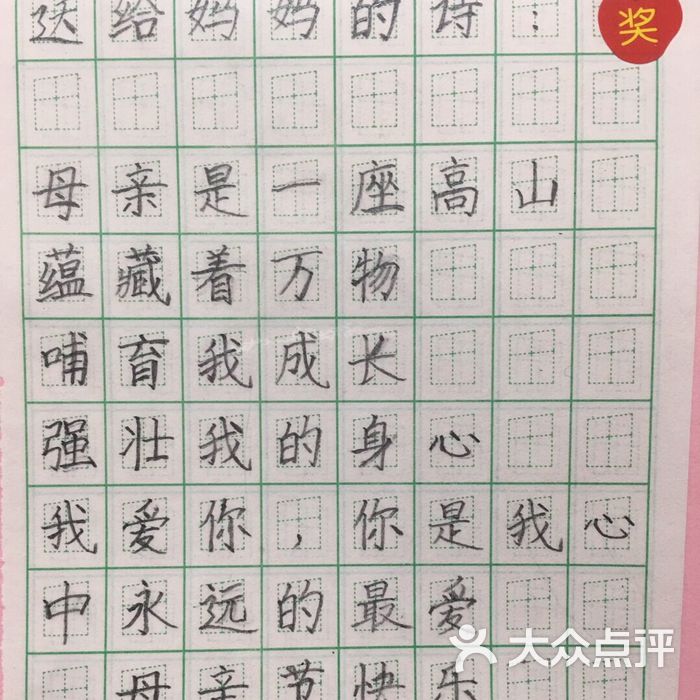 送给妈妈的诗:
奖
母亲是一座高山
蕴藏着万物
哺育我成长
强壮我的身心
我爱你,你是我心
中永远的最爱
母亲节快乐
大众点评